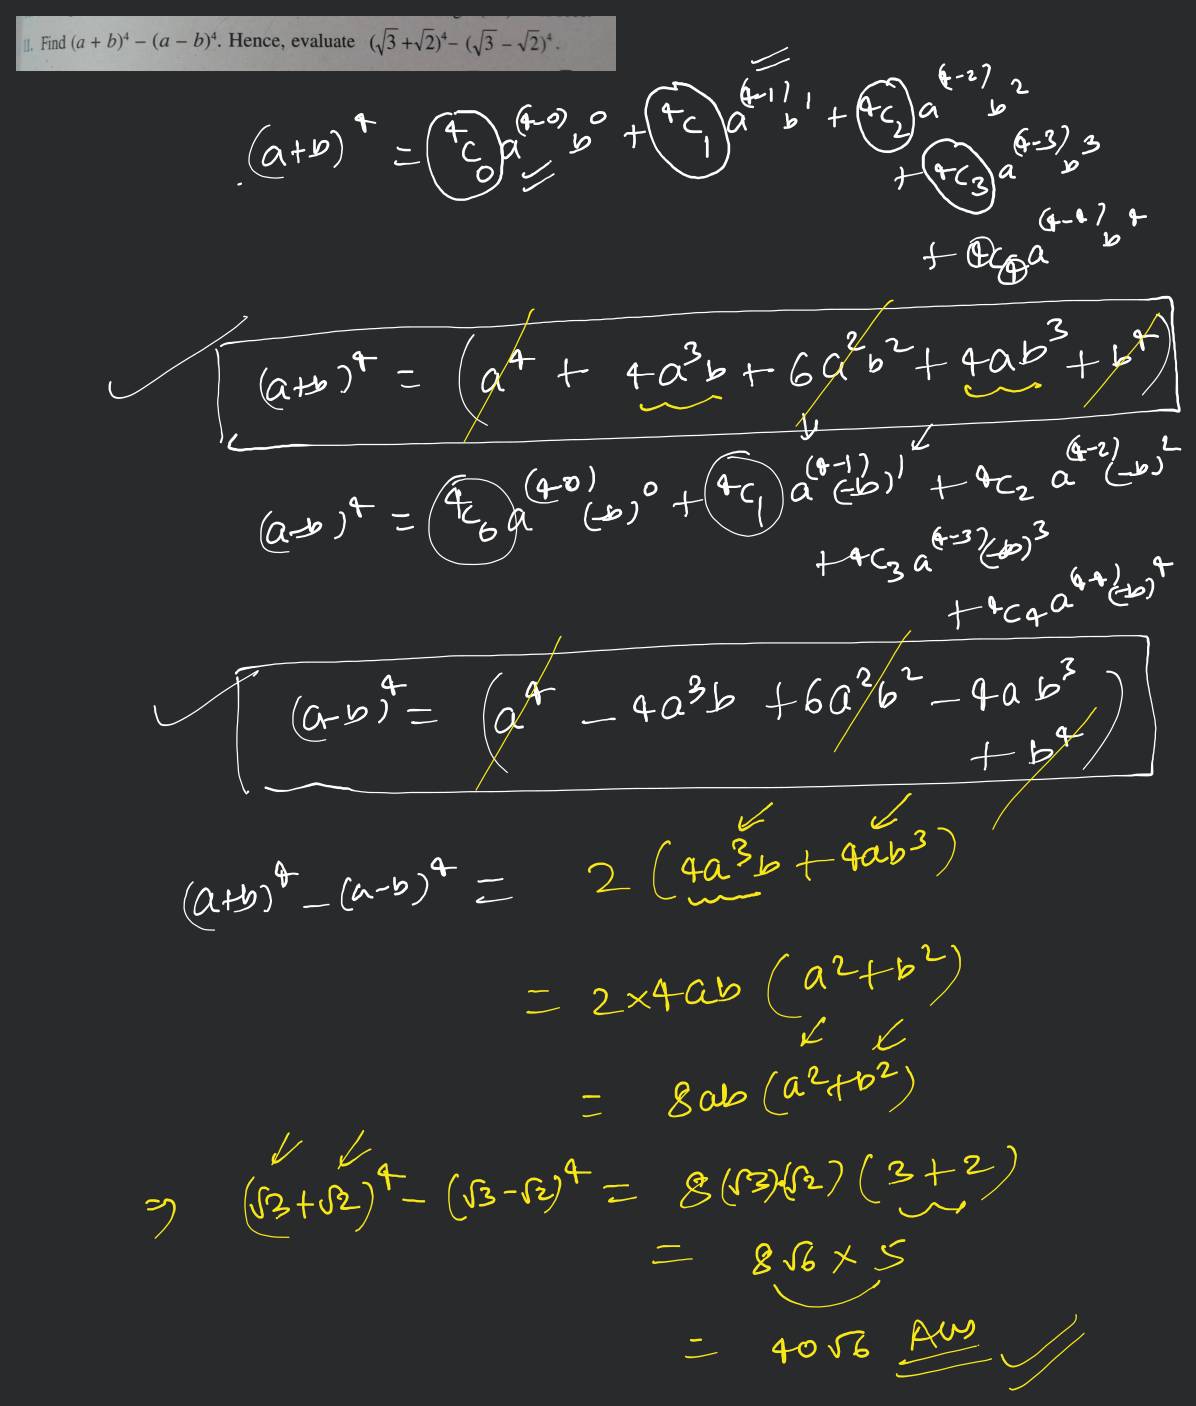 11. Find (a + b)⁴ – (a – b)⁴. Hence, evaluate (√3 + √2)⁴ – (√3 – √2)⁴.
(a+b)⁴ = ⁴C₀ a⁽⁴⁻⁰⁾ b⁰ + ⁴C₁ a⁽⁴⁻¹⁾ b¹ + ⁴C₂ a⁽⁴⁻²⁾ b²
+ ⁴C₃ a⁽⁴⁻³⁾ b³
+ ⁴C₄ a⁽⁴⁻⁴⁾ b⁴
(a+b)⁴ = (a⁴ + 4a³b + 6a²b² + 4ab³ + b⁴)
(a-b)⁴ = ⁴C₀ a⁽⁴⁻⁰⁾ (-b)⁰ + ⁴C₁ a⁽⁴⁻¹⁾ (-b)¹ + ⁴C₂ a⁽⁴⁻²⁾ (-b)²
+ ⁴C₃ a⁽⁴⁻³⁾ (-b)³
+ ⁴C₄ a⁽⁴⁻⁴⁾ (-b)⁴
(a-b)⁴ = (a⁴ - 4a³b + 6a²b² - 4ab³
+ b⁴)
(a+b)⁴ - (a-b)⁴ = 2(4a³b + 4ab³)
= 2×4ab (a²+b²)
= 8ab (a²+b²)
⇒ (√3+√2)⁴ - (√3-√2)⁴ = 8(√3)(√2)(3+2)
= 8√6 × 5
= 40√6 Ans